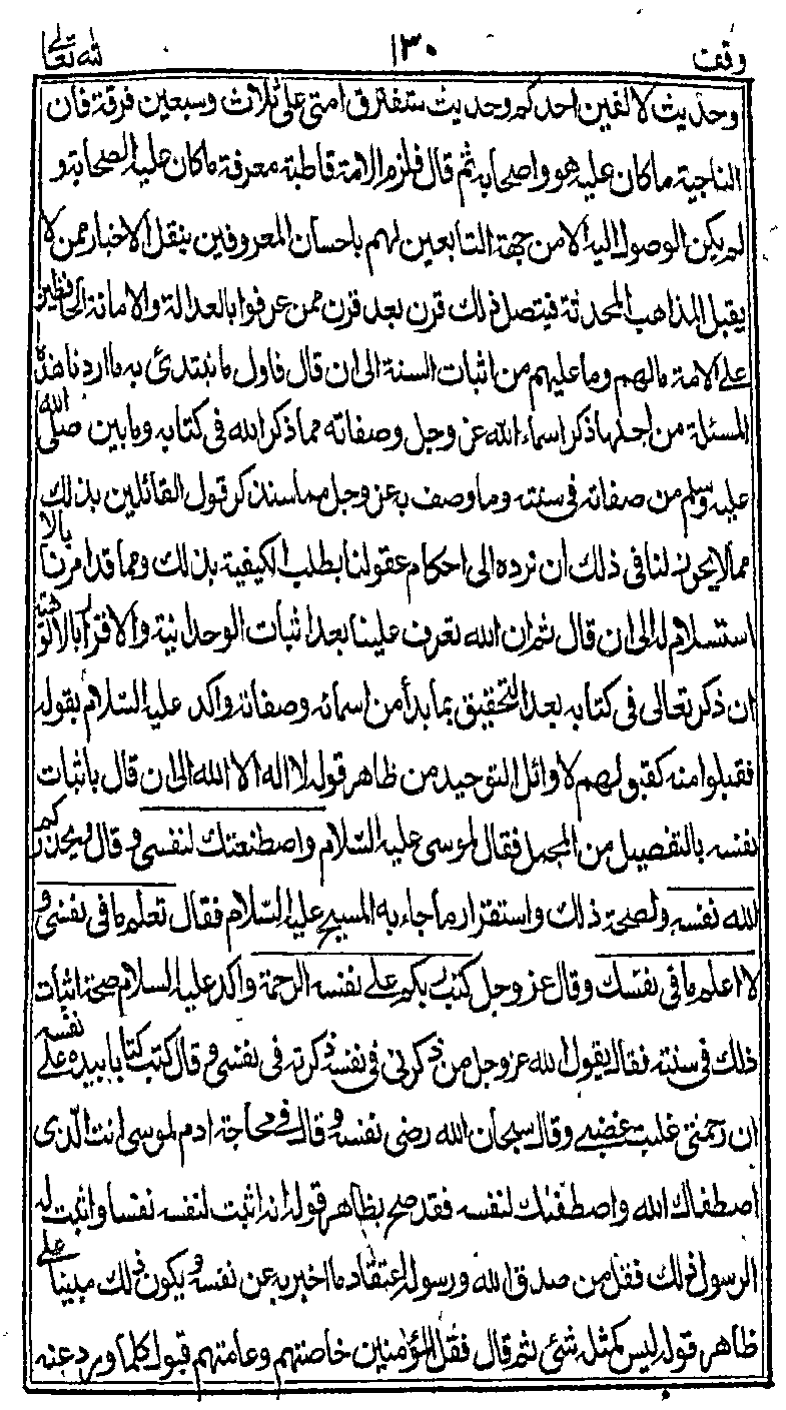 وقف ١٣٠ لله تعالى
وحديث لا الفين احدكم وحديث ستفترق امتى على ثلاث وسبعين فرقة فان
الناجية ما كان عليه هو واصحابه ثم قال فلزم الامة قاطبة معرفة ما كان عليه الصحابة و
لم يكن الوصول اليه الا من جهة التابعين لهم باحسان المعروفين بنقل الاخبار ممن لا
يقبل المذاهب المحدثة فيتصل ذلك قرن بعد قرن ممن عرفوا بالعدالة والامانة الحافظين
على الامة مالهم وما عليهم من اثبات السنة الى ان قال فاول ما نبتدئ به ما اردنا هذه
المسئلة من اجلها ذكر اسماء الله عز وجل وصفاته مما ذكر الله فى كتابه وما بين صلى الله
عليه وسلم من صفاته فى سنته وما وصف به عز وجل مما سنذكر قول القائلين بذلك
مما لا يجوز لنا فى ذلك ان نرده الى احكام عقولنا بطلب الكيفية بذلك ومما قد امرنا بالا
استسلام له الى ان قال ثم ان الله تعرف علينا بعد اثبات الوحدانية والاقرار بالالوهية
ان ذكر تعالى فى كتابه بعد التحقيق بما بدأ من اسمائه وصفاته واكد عليه السلام بقوله
فقبلوا منه كقبولهم لاوائل التوحيد من ظاهر قوله لا اله الا الله الى ان قال باثبات
نفسه بالتفصيل من المجمل فقال لموسى عليه السلام واصطنعتك لنفسى و قال ويحذركم
الله نفسه ولصحة ذلك واستقرار ما جاء به المسيح عليه السلام فقال تعلم ما فى نفسى و
لا اعلم ما فى نفسك وقال عز وجل كتب ربكم على نفسه الرحمة واكد عليه السلام صحة اثبات
ذلك فى سنته فقال يقول الله عز وجل من ذكرنى فى نفسه ذكرته فى نفسى و قال كتب كتابا بيده على نفسه
ان رحمتى غلبت غضبى وقال سبحان الله رضى نفسه و قال فى محاجة ادم لموسى انت الذى
اصطفاك الله واصطنعك لنفسه فقد صح بظاهر قوله انه اثبت لنفسه نفسا واثبت له
الرسول ذلك فقل من صدق الله ورسوله اعتقاد ما اخبر به عن نفسه و يكون ذلك مبينا على
ظاهر قوله ليس كمثله شئ ثم قال فقل المؤمنين خاصتهم وعامتهم قبول كلما ورد عنه